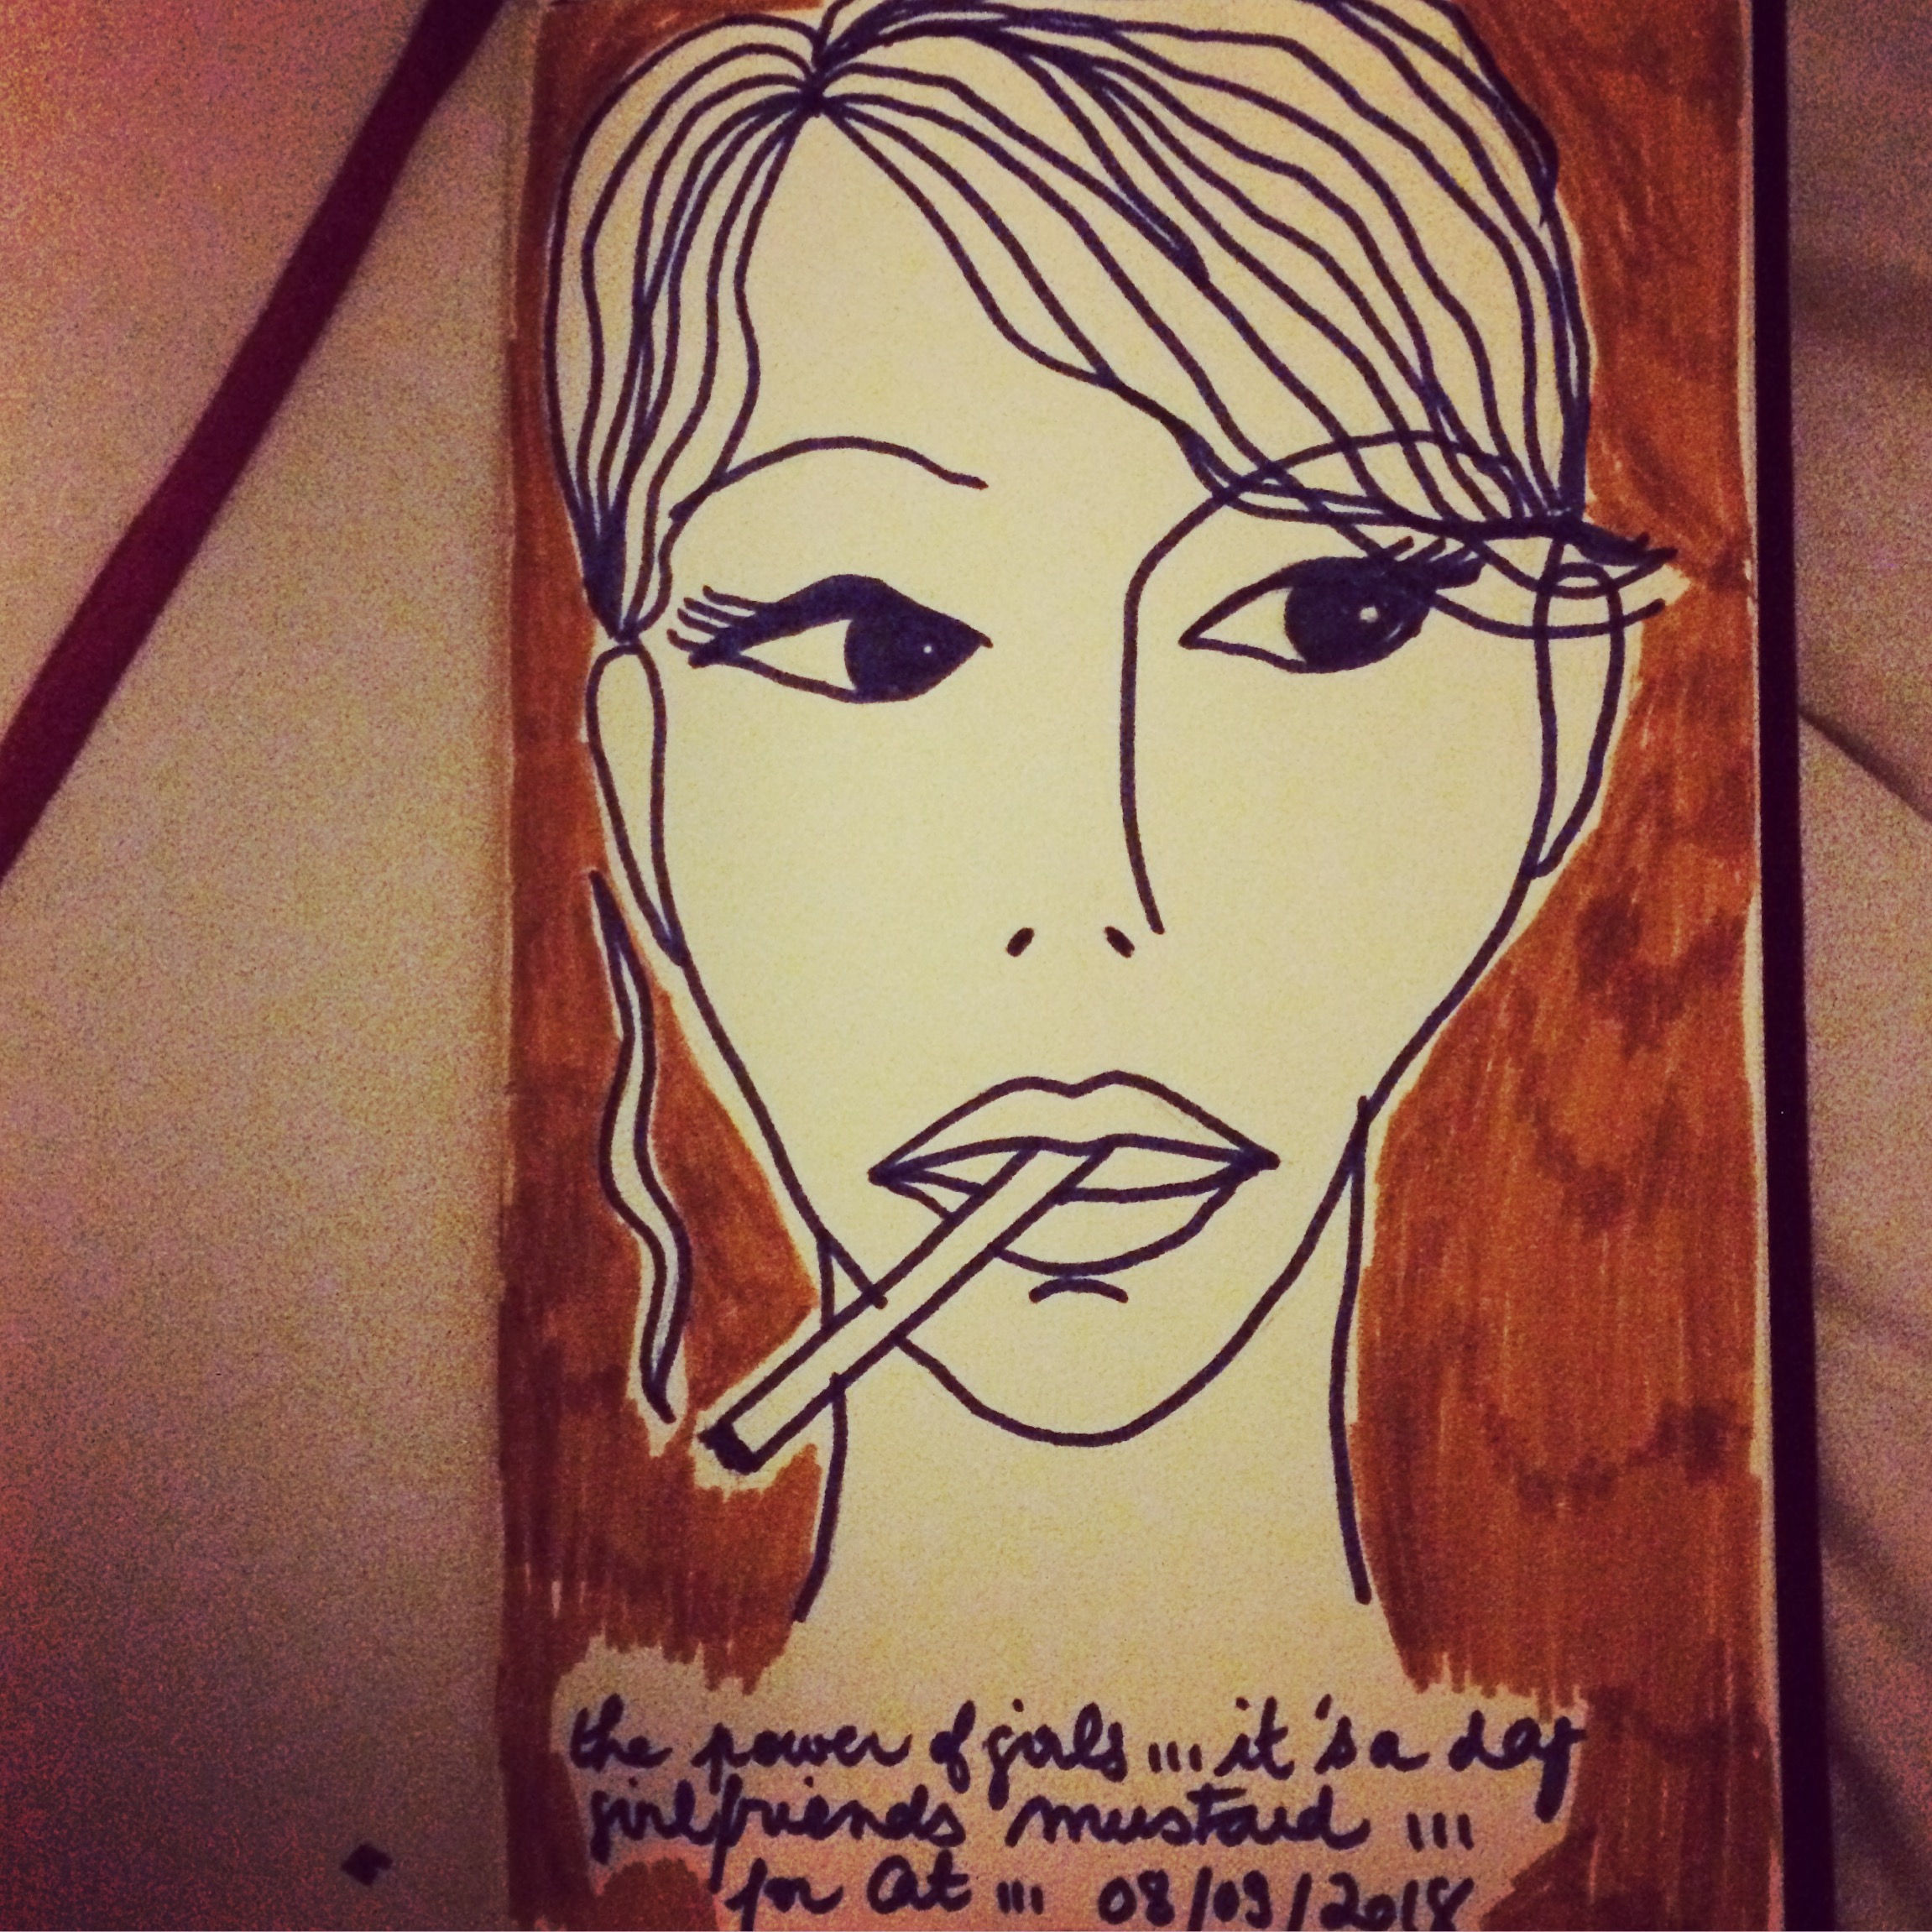 the power of girls ... it's a day
girlfriends mustaid ...
for at ... 08/03/2018